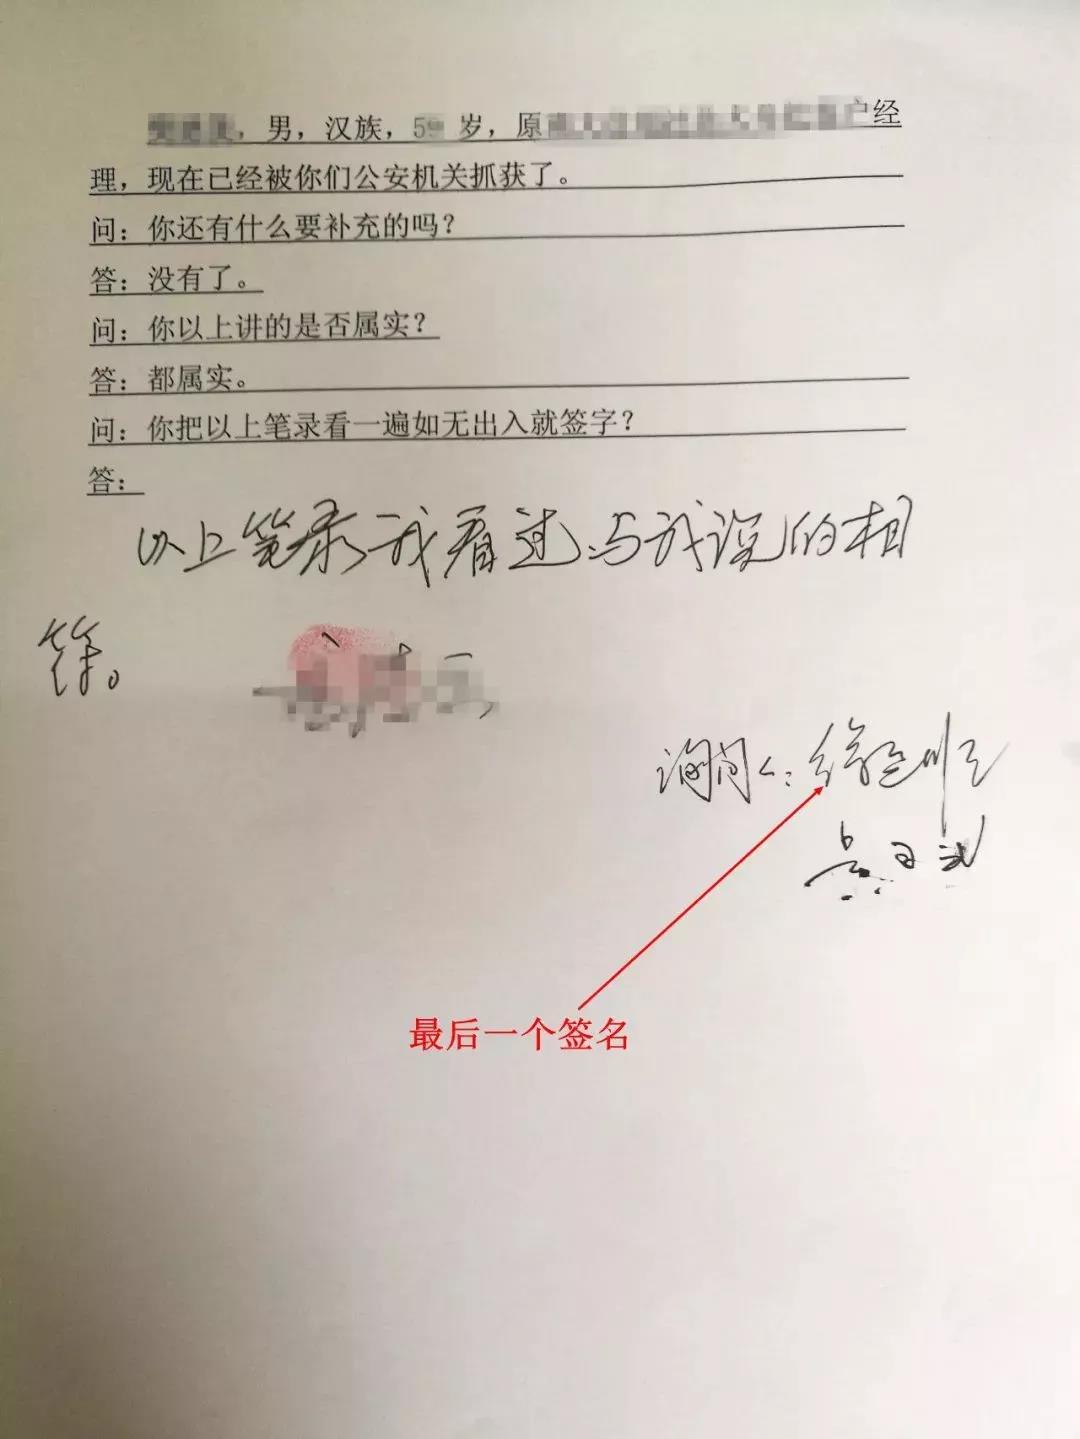 ，男，汉族，5 岁，原 户经
理，现在已经被你们公安机关抓获了。
问：你还有什么要补充的吗？
答：没有了。
问：你以上讲的是否属实？
答：都属实。
问：你把以上笔录看一遍如无出入就签字？
答：
以上笔录我看过，与我说的相
符。
询问人：
最后一个签名